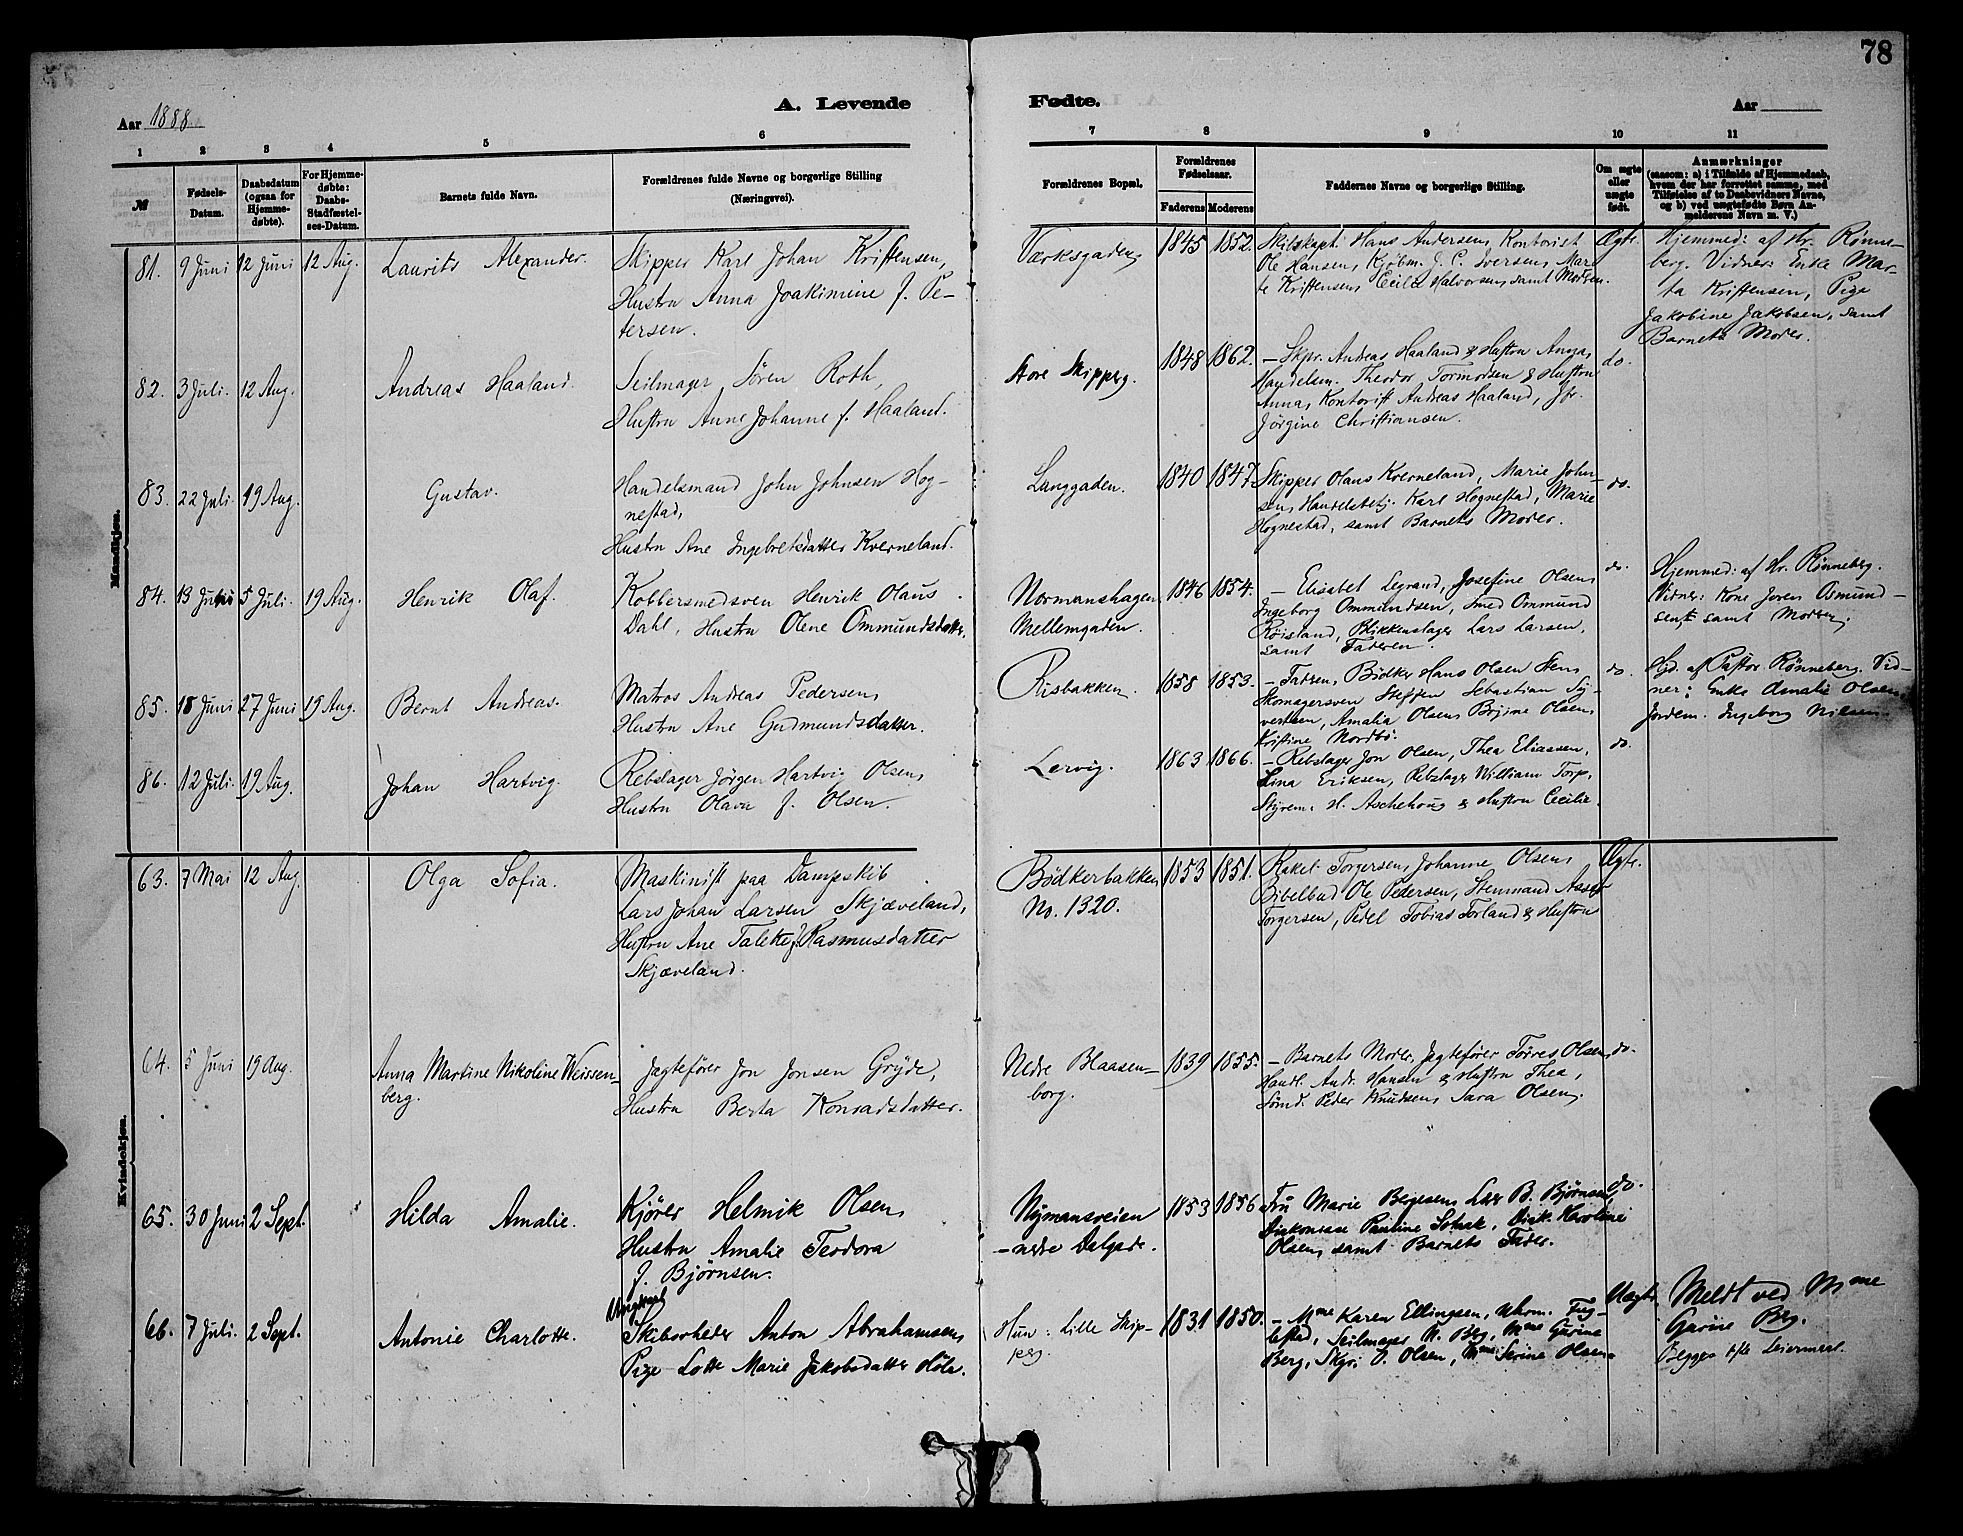 78
A. Levende
Fødte.
Aar 1888
Aar
1 2 3 4 5 6
7 8 9 10 11
№
Fødsels-
Datum.
Daabsdatum
(ogsaa for
Hjemme-
døbte).
For Hjemme-
døbte:
Daabs-
Stadfæstel-
ses-Datum.
Barnets fulde Navn.
Forældrenes fulde Navne og borgerlige Stilling
(Næringsvei).
Forældrenes Bopæl.
Forældrenes
Fødselsaar.
Faderens Moderens
Faddernes Navne og borgerlige Stilling.
Om ægte
eller
uægte
født.
Anmærkninger
(saasom: a) i Tilfælde af Hjemmedaab,
hvem der har forrettet samme, med
Tilføielse af to Daabsvidners Navne,
og b) ved uægtefødte Børn An-
melderens Navn m. V.)
Mandkjøn.
81. 9 Juni 12 Juni 12 Aug. Laurits Alexander.
Skipper Karl Johan Kristensen,
Hustru Anna Joakimine f. Pe-
tersen.
Værksgaden, 1845 1852.
Skibskapt: Hans Andersen, Kontorist
Ole Hansen, Kjøbm. J. C. Iversen, Mar-
te Kristensen, Cecilé Halvorsen, samt Moderen.
Ægte.
Hjemmed: af Hr. Rønne-
berg. Vidner: Enke Mar-
ta Kristensen, Pige
Jakobine Jakobsen, samt
Barnets Moder.
82. 3 Juli. 12 Aug. Andreas Haaland.
Seilmager Sören Roth,
Hustru Anne Johanne f. Haaland.
Store Skipperg. 1848 1862.
– Skpr. Andreas Haaland & Hustru Anna,
Handelsm. Theodor Tormodsen & Hustru
Anna, Kontorist Andreas Haaland, Jfr.
Jörgine Christiansen.
do.
83. 22 Juli. 19 Aug. Gustav.
Handelsmand John Johnsen Hog-
nestad,
Hustru Ane Ingebretsdatter Kverneland.
Langgaden. 1840 1847.
Skipper Olaus Kverneland, Marie John-
sen, Handelsbetj. Karl Hognestad, Marie
Hognestad, samt Barnets Moder.
do.
84. 13 Juni 5 Juli. 19 Aug. Henrik Olaf.
Kobbersmedsven Henrik Olaus
Dahl, Hustru Olene Ommundsdatter,
Normanshagen
Mellemgaden. 1846 1854.
– Elisabet Legrand, Josefine Olsen,
Ingeborg Ommundsen, Smed Ommund
Röisland, Blikkenslager Lars Larsen,
samt Faderen.
do.
Hjemmed: af Hr. Rønneberg.
Vidner: Kone Joren Osmund-
sen, samt Moderen,
85. 18 Juni 27 Juni 19 Aug. Bernt Andreas.
Matros Andreas Pedersen,
Hustru Ane Gudmundsdatter.
Risbakken. 1858 1853.
– Faderen, Bödker Hans Olsen Stens
Skomagersven Steffen Sebastian Sy-
vertsen, Amalia Olsen, Brjine Olsen,
Kristine Nordbö.
do.
Hjd. af Pastor Rønneberg. Vid-
ner: Enke Amalie Olsen,
Jordem. Ingeborg Nilsen.
86. 12 Juli. 19 Aug. Johan Hartvig.
Rebslager Jörgen Hartvig Olsen,
Hustru Olava f. Olsen.
Lervig. 1863 1866.
– Rebslager Jon Olsen, Thea Eliassen,
Lina Eriksen, Rebslager William Torp,
Styrem. H. Aschehoug & Hustru Cecilie.
do.
Kvindekjøn.
63. 7 Mai 12 Aug. Olga Sofia.
Maskinist paa Dampskib
Lars Johan Larsen Skjæveland,
Hustru Ane Talette f. Rasmusdatter
Skjæveland.
Bödkerbakken
No. 1320. 1853 1851.
Rakel Torgersen, Johanne Olsen,
Bibelbud Ole Pedersen, Stenmand Asser
Torgersen, Pedel Tobias Torland & Hustru
Ægte.
64. 5 Juni 19 Aug. Anna Martine Nikoline Weissen-
berg.
Jagtefører Jon Jonsen Gryde,
Hustru Berta Konradsdatter.
Nedre Blaasen-
borg. 1839 1855.
– Barnets Moder, Jagtefører Törres Olsen,
Handl. Andr. Hansen & Hustru Thea,
Sömd. Peder Knudsen, Sara Olsen,
do.
65. 30 Juni 2 Sept. Hilda Amalie.
Kjörer Helmik Olsen,
Hustru Amalie Teodora
f. Björnsen.
Nymansveien
– nedre Dalgade. 1853 1856
Fru Marie Bergesen, Lær B. Björnsen,
Diakonisse Pauline Diak. Karoline
Olsen, samt Barnets Fader.
do.
66. 7 Juli. 2 Sept. Antonie Charlotte.
Ungkarl
Skibsrheder Anton Abrahamsen,
Pige Lotte Marie Jakobsdatter Höle.
Hun: Lille Skip-
perg. 1831 1850.
– Mme Karen Ellingsen, Uhrm. Fug-
lestad, Seilmager N. Berg, Mme Gurine
Berg, Skpr. O. Olsen, Mme Serine Olsen.
Uægte.
Meldt ved Mme
Gurine Berg.
Begges Leiermaal.